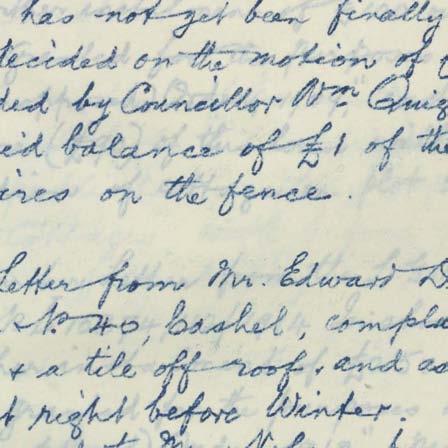 has not yet been finally
decided on the motion of
ded by Councillor Wm Quig
balance of £1 of the
ires on the fence.
Letter from Mr. Edward D
No 40, Cashel, compla
& a tile off roof, and as
t right before Winter.